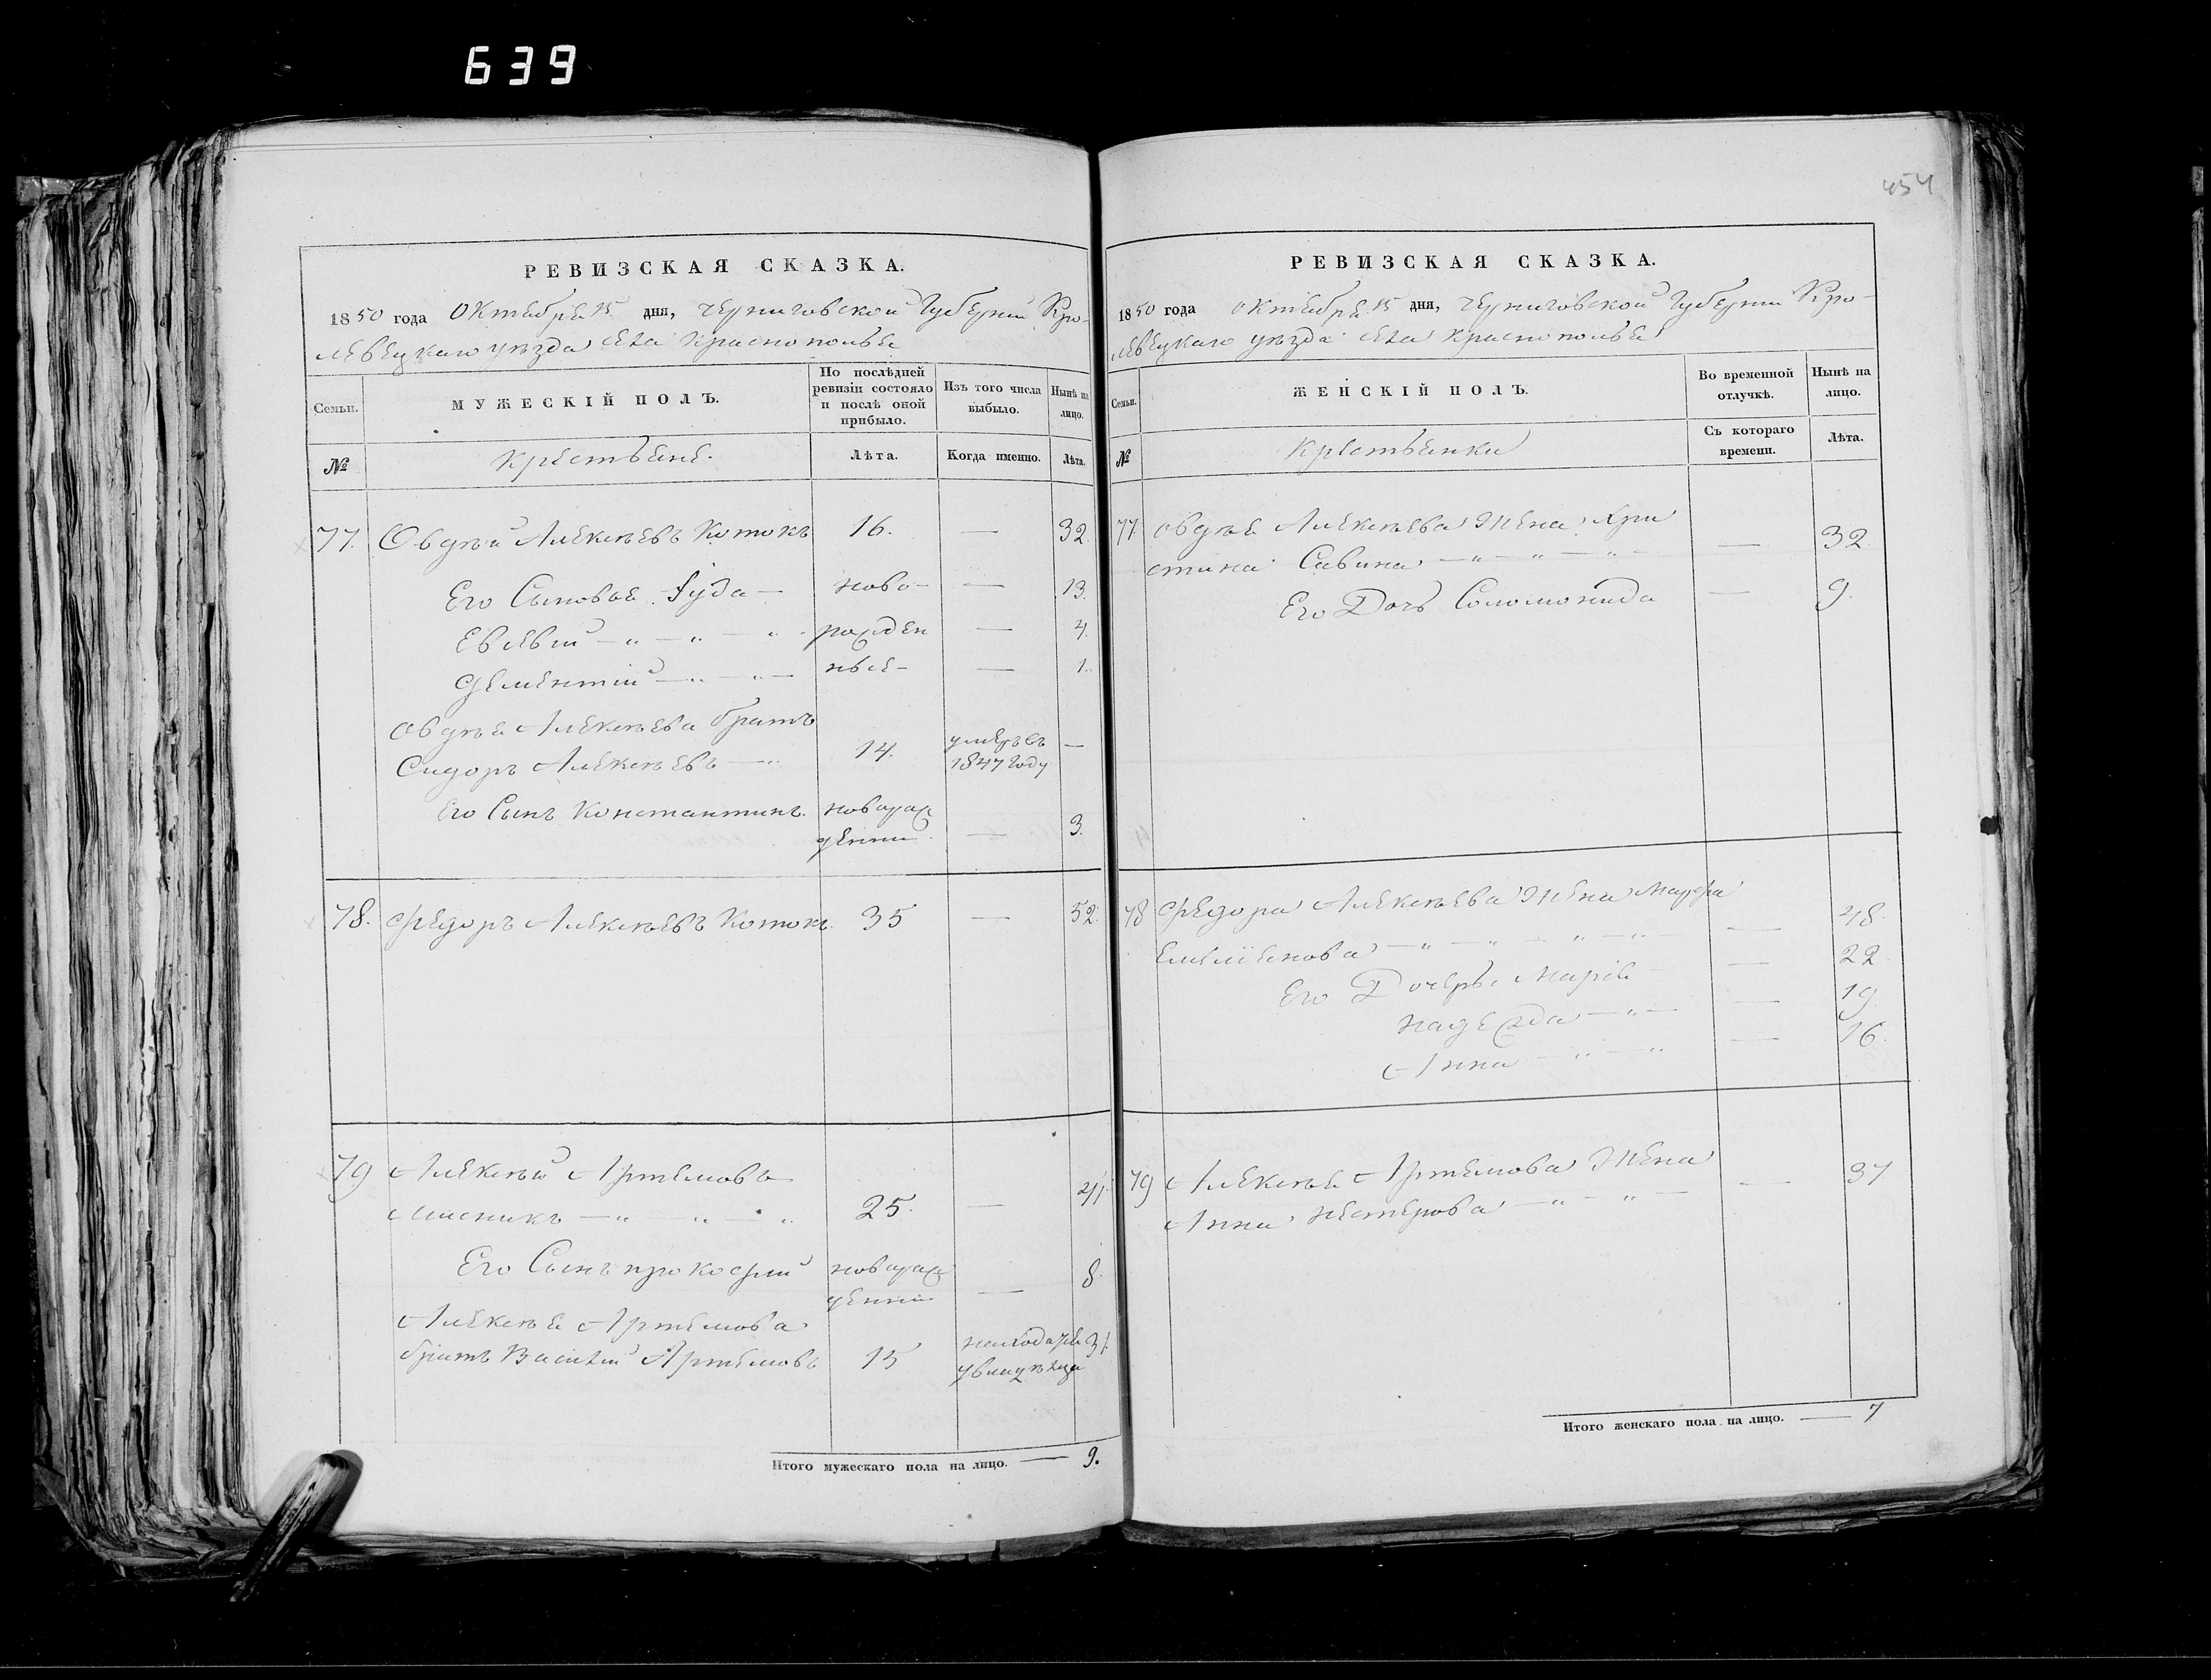 639
454
РЕВИЗСКАЯ СКАЗКА.
1850 года Октября 15 дня, Черниговской Губернии Кро-
левецкаго уезда села Краснополья
Семьи. МУЖЕСКІЙ ПОЛЪ. По послѣдней ревизіи состояло и послѣ оной прибыло. Изъ того числа выбыло. Нынѣ на лицо.
№ Крестьяне. Лѣта. Когда именно. Лѣта.
77. Овдѣй Алексѣевъ Котокъ 16. — 32.
Его Сыновья Іуда — ново- — 13.
Евсевій — " — " — " рожден — 4.
Дементій — " — " — ные — 1.
Овдѣя Алексѣева братъ
Сидоръ Алексѣевъ — " 14. умеръ въ 1847 году —
Его Сынъ Константинъ. новорож
денный — 3.
78. Федоръ Алексѣевъ Котокъ 35 — 52.
79 Алексѣй Артемовъ
Мисникъ — " — " — " 25. — 41.
Его Сынъ Прокофій новорож
денній — 8.
Алексѣя Артемова
братъ Василій Артемовъ 15 31.
Итого мужескаго пола на лицо. — 9.
РЕВИЗСКАЯ СКАЗКА.
1850 года Октября 15 дня, Черниговской Губернии Кро-
левецкаго уѣзда села Краснополья
Семьи. ЖЕНСКІЙ ПОЛЪ. Во временной отлучкѣ. Нынѣ на лицо.
№ Крестьянки Съ котораго времени. Лѣта.
77 Овдѣя Алексѣева Жена Хри
стина Савина — " — " — " — — 32.
Его Дочь Соломонида — 9.
78 Федора Алексѣева Жена Марфа
Емеліянова — " — " — " — " — — 48.
Его Дочерь Марія — 22
Надежда — " — — 19.
Анна — " — " — 16.
79 Алексѣя Артемова Жена
Анна Нестерова — " — " — — 37
Итого женскаго пола на лицо. — 7